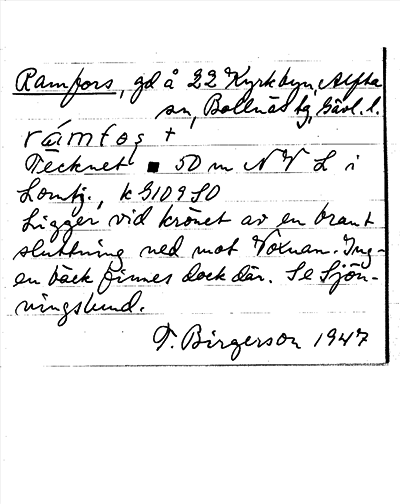 Ramfors, gd å 22 Kyrkbyn, Alfta
sn, Bollnäs tg, Gävl. l.
rámfoș +
Tecknet ■ 50 m NV L i
Lomtj., k 3109 SO
Ligger vid krönet av en brant
sluttning ned mot Voxnan. Ing-
en bäck finnes dock där. Se Sjön-
ningslund.
F. Birgerson 1947